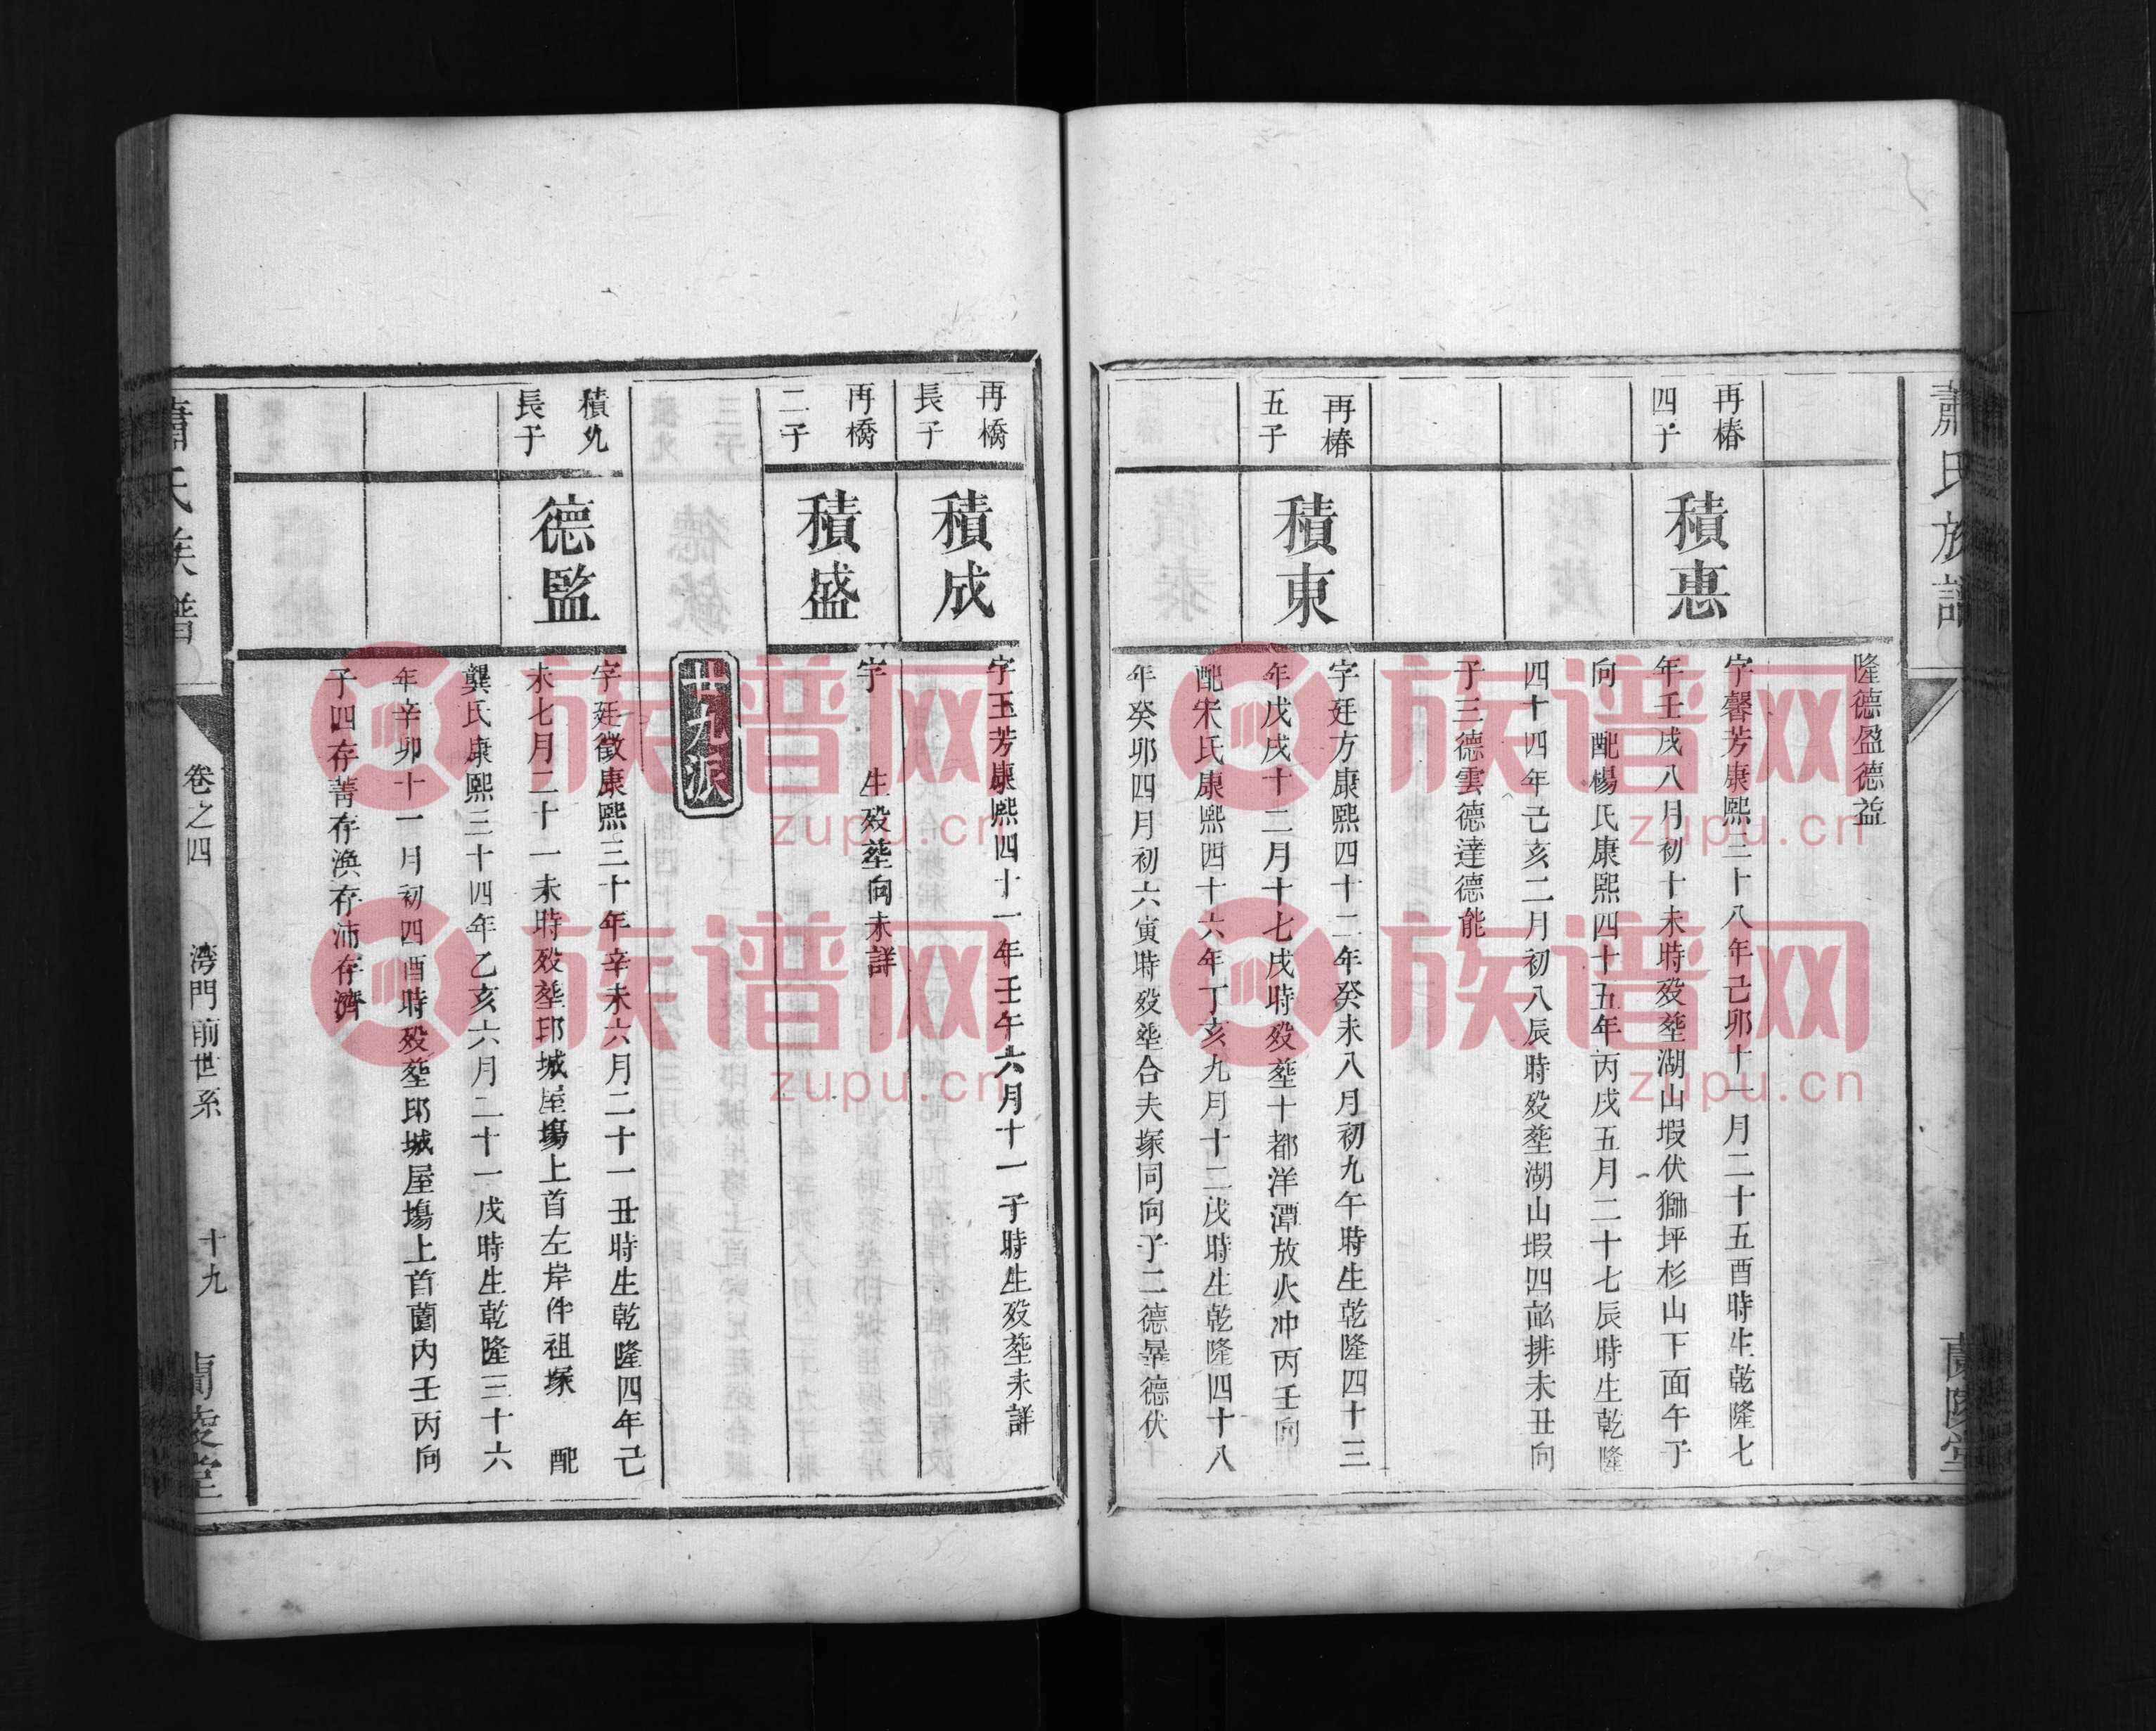 蕭氏族譜
蘭陵堂
隆德盈德益
再椿
四子
積惠
字馨芳康熙三十八年己卯十一月二十五酉時生乾隆七
年壬戌八月初十未時歿塟湖山塅伏獅坪杉山下面午丁
向 配楊氏康熙四十五年丙戌五月二十七辰時生乾隆
四十四年己亥二月初八辰時歿塟湖山塅四畝排未丑向
子三德雲德達德能
再椿
五子
積東
字廷方康熙四十二年癸未八月初九午時生乾隆四十三
年戊戌十二月十七戌時歿塟十都洋潭放火冲丙壬向
配宋氏康熙四十六年丁亥九月十二戌時生乾隆四十八
年癸卯四月初六寅時歿塟合夫塚同向子二德暠德伏
再橋
長子
積成
字玉芳康熙四十一年壬午六月十一子時生歿塟未詳
再橋
二子
積盛
字 生歿塟向未詳
廿九派
積允
長子
德監
字廷徵康熙三十年辛未六月二十一丑時生乾隆四年己
未七月二十一未時歿塟邛城屋塲上首左岸伴祖塚 配
龔氏康熙三十四年乙亥六月二十一戌時生乾隆三十六
年辛卯十一月初四酉時歿塟邛城屋塲上首薗內壬丙向
子四存菁存渙存沛存濟
蕭氏族譜
卷之四
湾門前世系
十九
蘭陵堂
族谱网
zupu.cn
族谱网
zupu.cn
族谱网
zupu.cn
族谱网
zupu.cn